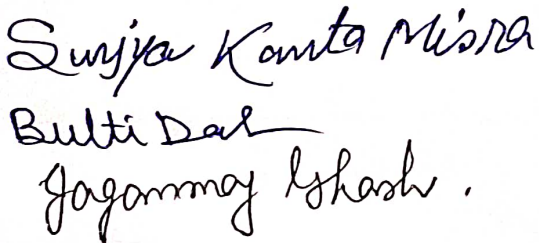 Surjya Kanta Misra
Bulti Dash
Jaganmay Ghosh.